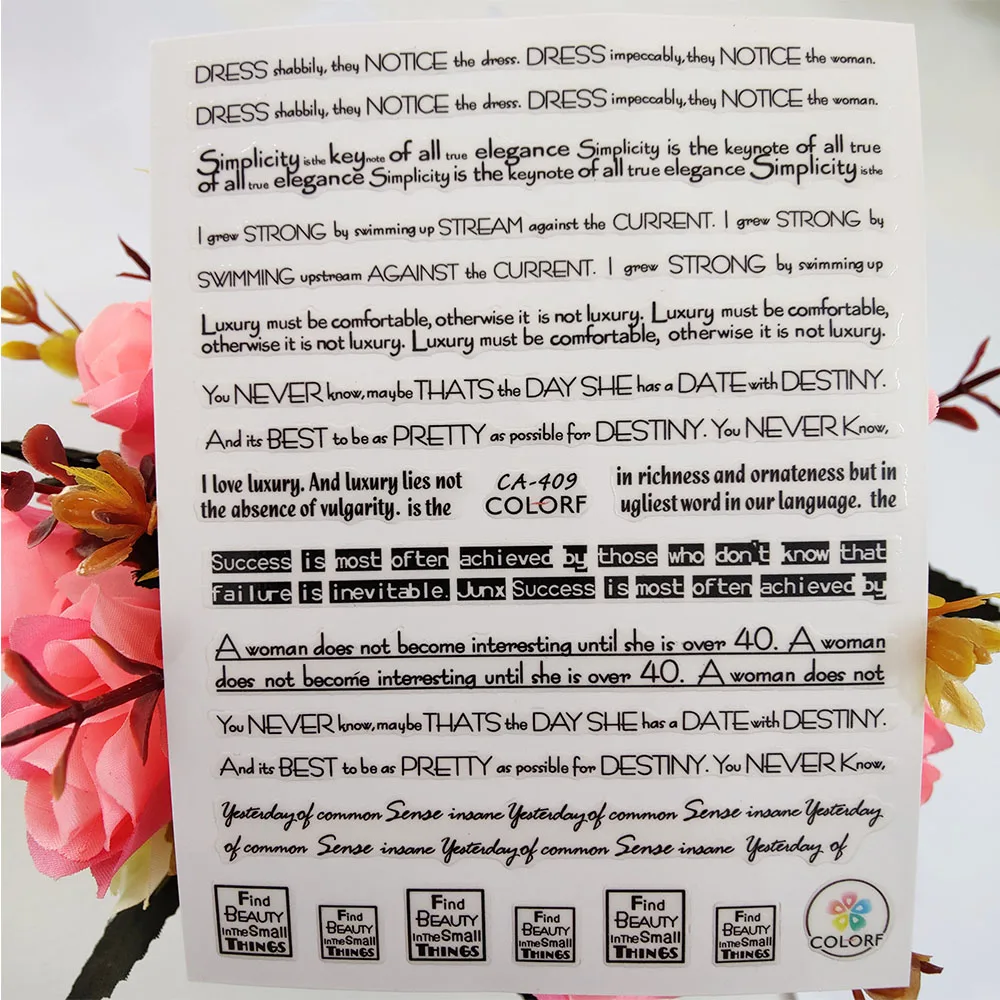 DRESS shabbily, they NOTICE the dress. DRESS impeccably, they NOTICE the woman.
DRESS shabbily, they NOTICE the dress. DRESS impeccably, they NOTICE the woman.
Simplicity is the keynote of all true elegance Simplicity is the keynote of all true
of all true elegance Simplicity is the keynote of all true elegance Simplicity is the
I grew STRONG by swimming up STREAM against the CURRENT. I grew STRONG by
SWIMMING upstream AGAINST the CURRENT. I grew STRONG by swimming up
Luxury must be comfortable, otherwise it is not luxury. Luxury must be comfortable,
otherwise it is not luxury. Luxury must be comfortable, otherwise it is not luxury.
You NEVER know, maybe THATS the DAY SHE has a DATE with DESTINY.
And its BEST to be as PRETTY as possible for DESTINY. You NEVER Know,
I love luxury. And luxury lies not
the absence of vulgarity. is the
CA-409
COLORF
in richness and ornateness but in
ugliest word in our language. the
Success is most often achieved by those who don't know that
failure is inevitable. Junx Success is most often achieved by
A woman does not become interesting until she is over 40. A woman
does not become interesting until she is over 40. A woman does not
You NEVER know, maybe THATS the DAY SHE has a DATE with DESTINY.
And its BEST to be as PRETTY as possible for DESTINY. You NEVER Know,
Yesterday of common Sense insane Yesterday of common Sense insane Yesterday
of common Sense insane Yesterday of common Sense insane Yesterday of
Find
BEAUTY
InTheSmall
THINGS
Find
BEAUTY
InTheSmall
THINGS
Find
BEAUTY
InTheSmall
THINGS
Find
BEAUTY
InTheSmall
THINGS
Find
BEAUTY
InTheSmall
THINGS
Find
BEAUTY
InTheSmall
THINGS
COLORF